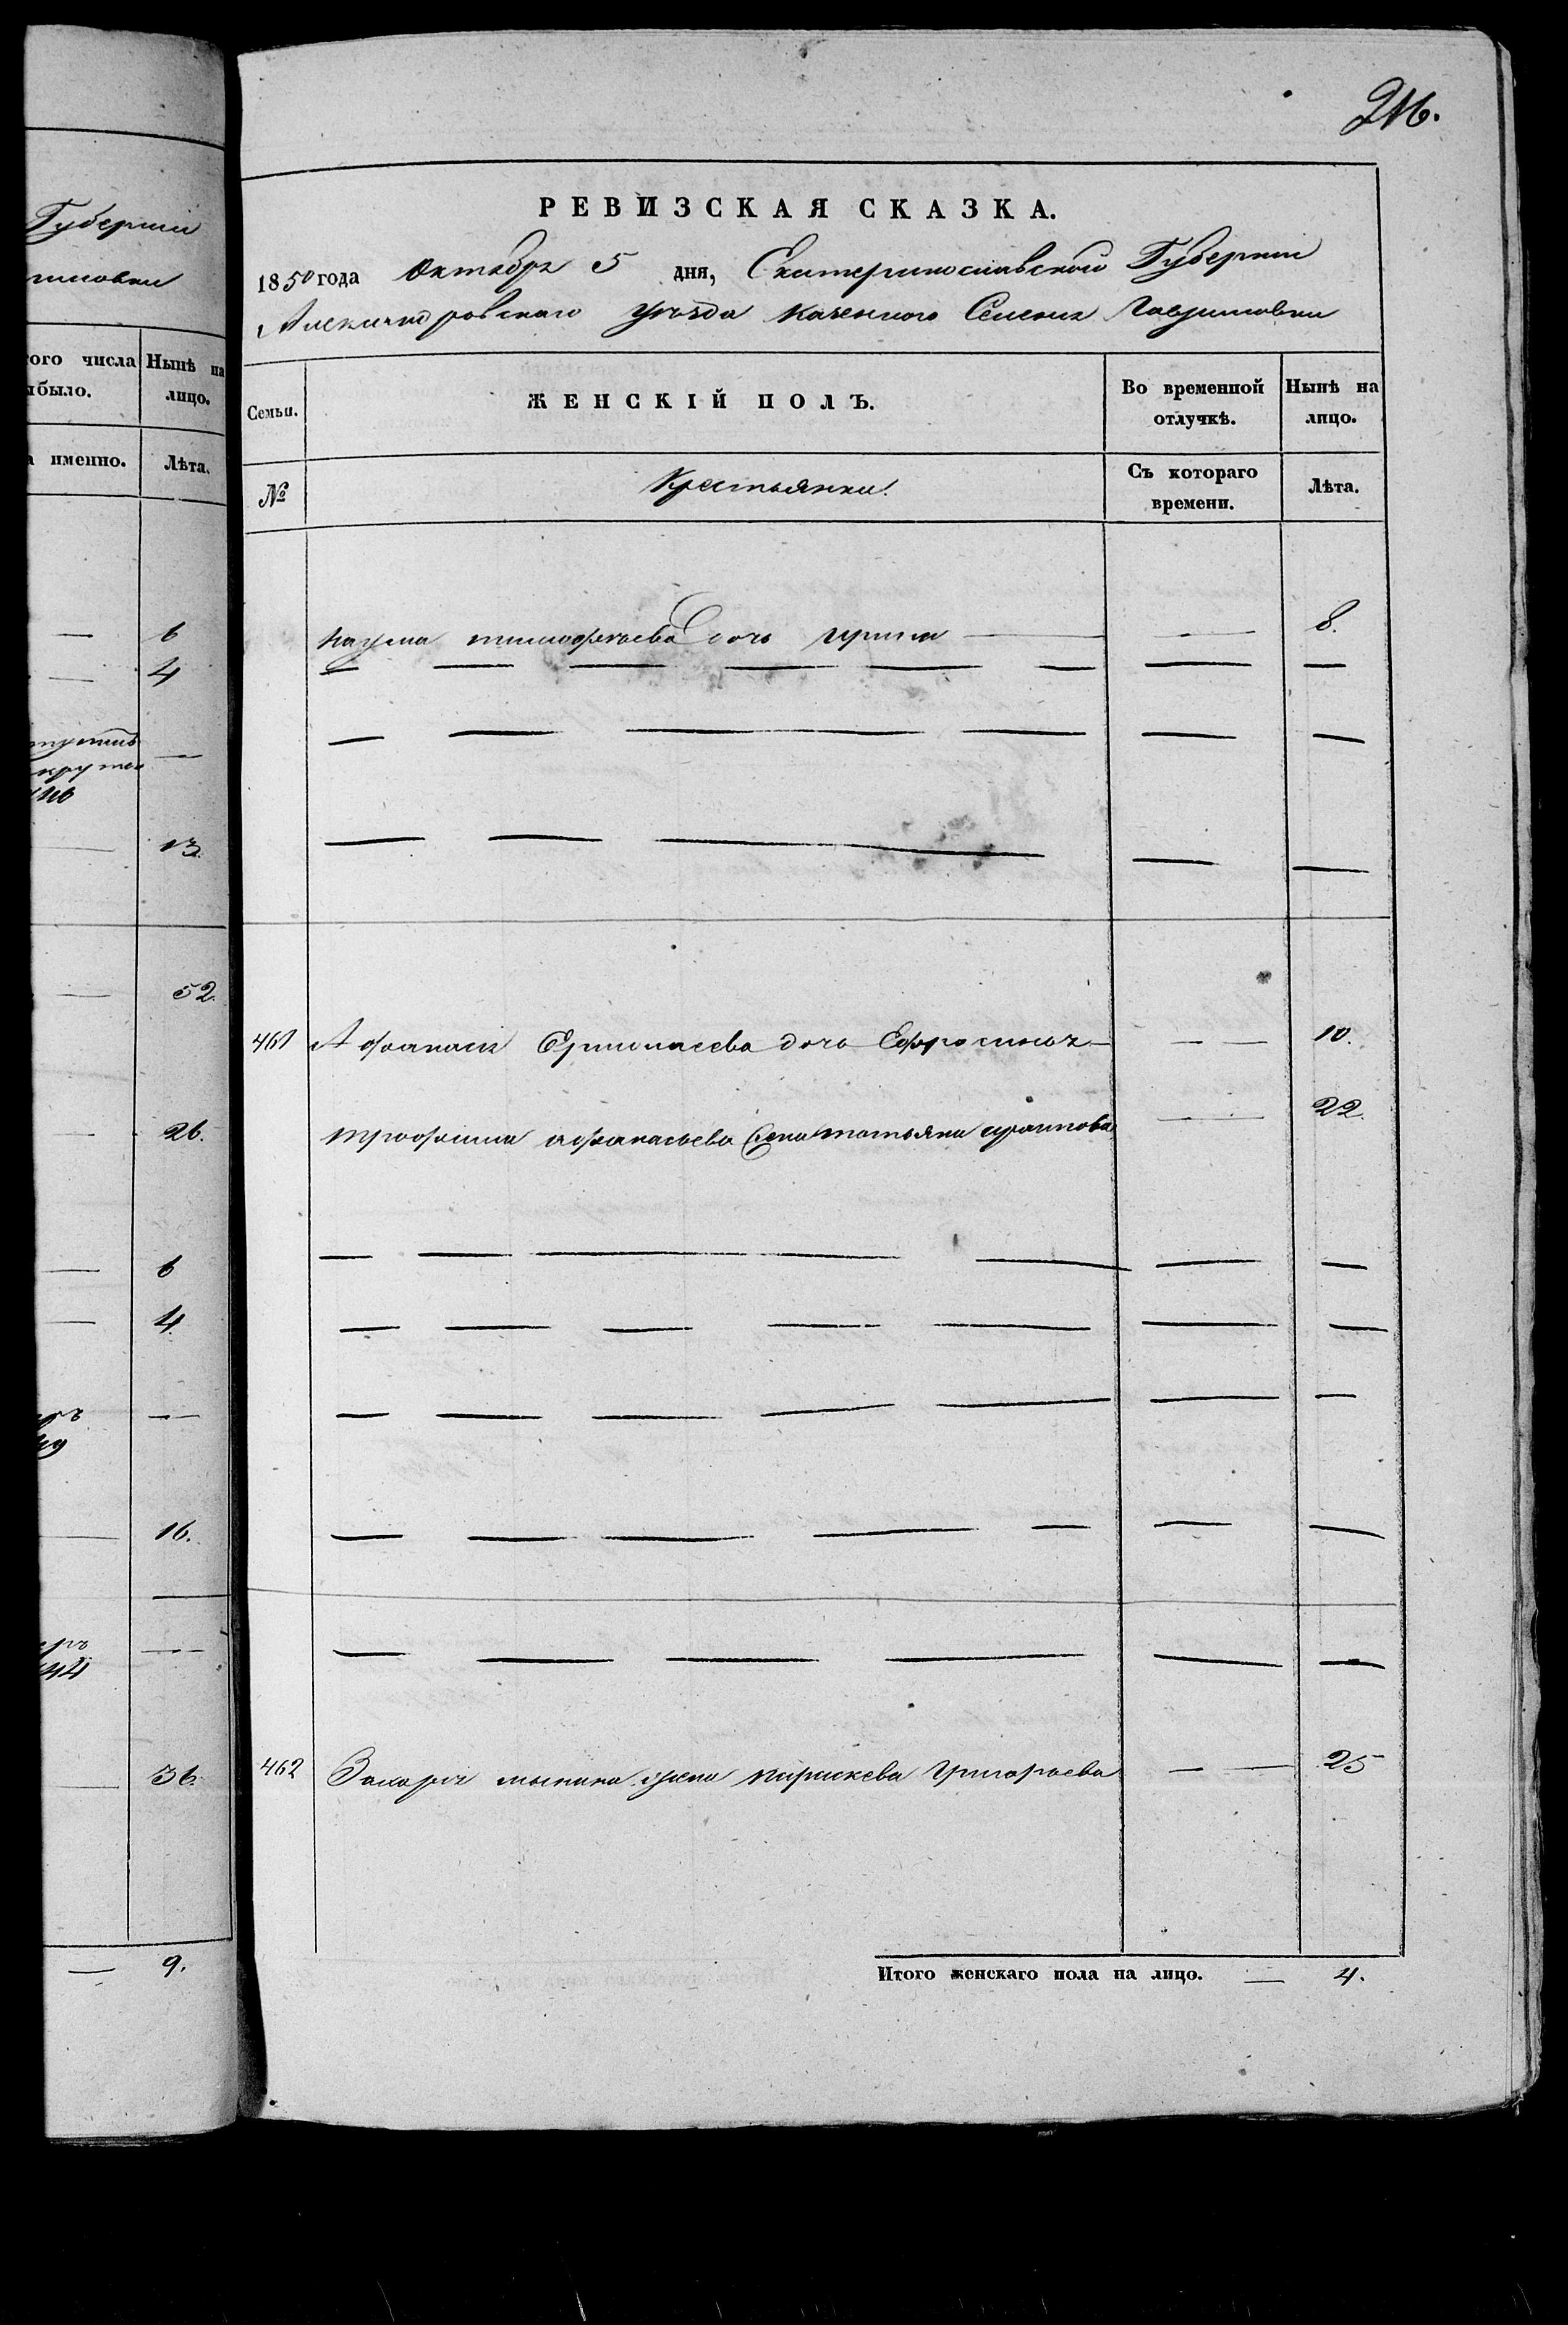 216.
Губернии
ого числа
было.
Нынѣ на
лицо.
а именно.
Лѣта.
6
4
13.
52.
26.
6
4
16.
44
36.
9.
РЕВИЗСКАЯ СКАЗКА.
1850 года Октября 5 дня, Екатеринославской Губернии
Александровскаго уѣзда казенного Селения Гавриловки
Семьи. ЖЕНСКІЙ ПОЛЪ. Во временной отлучкѣ. Нынѣ на лицо.
№ Крестьянки. Съ котораго времени. Лѣта.
Наума тимофѣева дочь Ирина 8.
461 Афанасия Ермолаева дочь Ефросиния 10.
трофима афанасьева жена татьяна 22.
462 Захария жена параскева Григорьева 25
Итого женскаго пола на лицо. — 4.